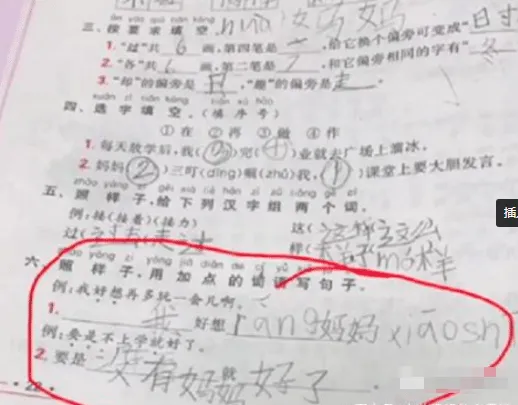 àn yāo qiú tián kòng
三、按要求填空。 nǚ 妈 妈
1. “过”共 6 画,第四笔是 一 ,给它换个偏旁可变成“日寸
2. “各”共 6 画,第二笔是 ㇇ ,和它偏旁相同的字有“冬
3. “却”的偏旁是 ,“趣”的偏旁是走 。
xuǎn zì tián kòng tián xù hào
四、选字填空。(填序号)
①在 ②再 ③做 ④作
1. 每天放学后,我(③)完(④)业就去广场上溜冰。
2. 妈妈(②)三叮(dīng)嘱(zhǔ)我,(①)课堂上要大胆发言。
zhào yàng zi gěi xià liè hàn zì zǔ liǎng gè cí
五、照样子,给下列汉字组两个词。
例:接(接着)(接力) 这(这样)(这么
过(过去)(走过 样(样子)(mó样
zhào yàng zi yòng jiā diǎn de cí yǔ xiě jù zi
六、照样子,用加点的词语写句子。
例:我好想再多玩一会儿啊。
1. 我 好想 ràng妈妈xiāosh
例:要是不上学就好了。
2. 要是 没有妈妈 就 好了
22
插